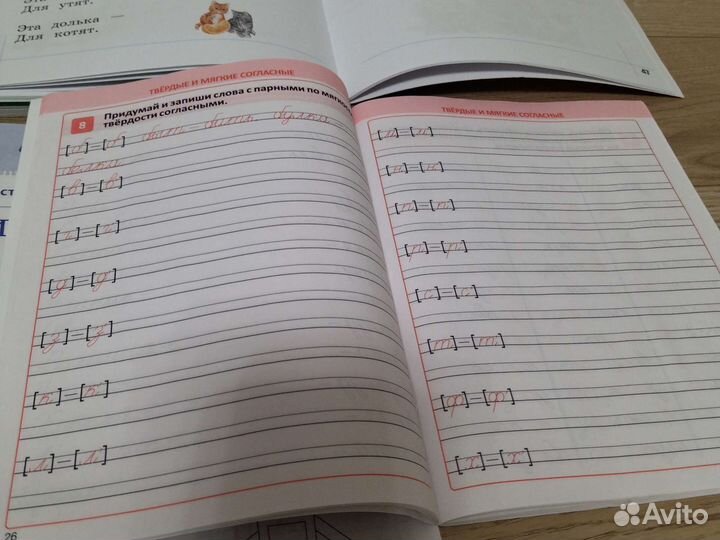 Для утят.
Эта долька —
Для котят.
47
ТВЁРДЫЕ И МЯГКИЕ СОГЛАСНЫЕ
8 Придумай и запиши слова с парными по мягкос
твёрдости согласными.
[б]=[б']
[в]=[в']
[г]=[г']
[д]=[д']
[з]=[з']
[к]=[к']
[л]=[л']
26
ТВЁРДЫЕ И МЯГКИЕ СОГЛАСНЫЕ
[м]=[м']
[н]=[н']
[п]=[п']
[р]=[р']
[с]=[с']
[т]=[т']
[ф]=[ф']
[х]=[х']
Avito